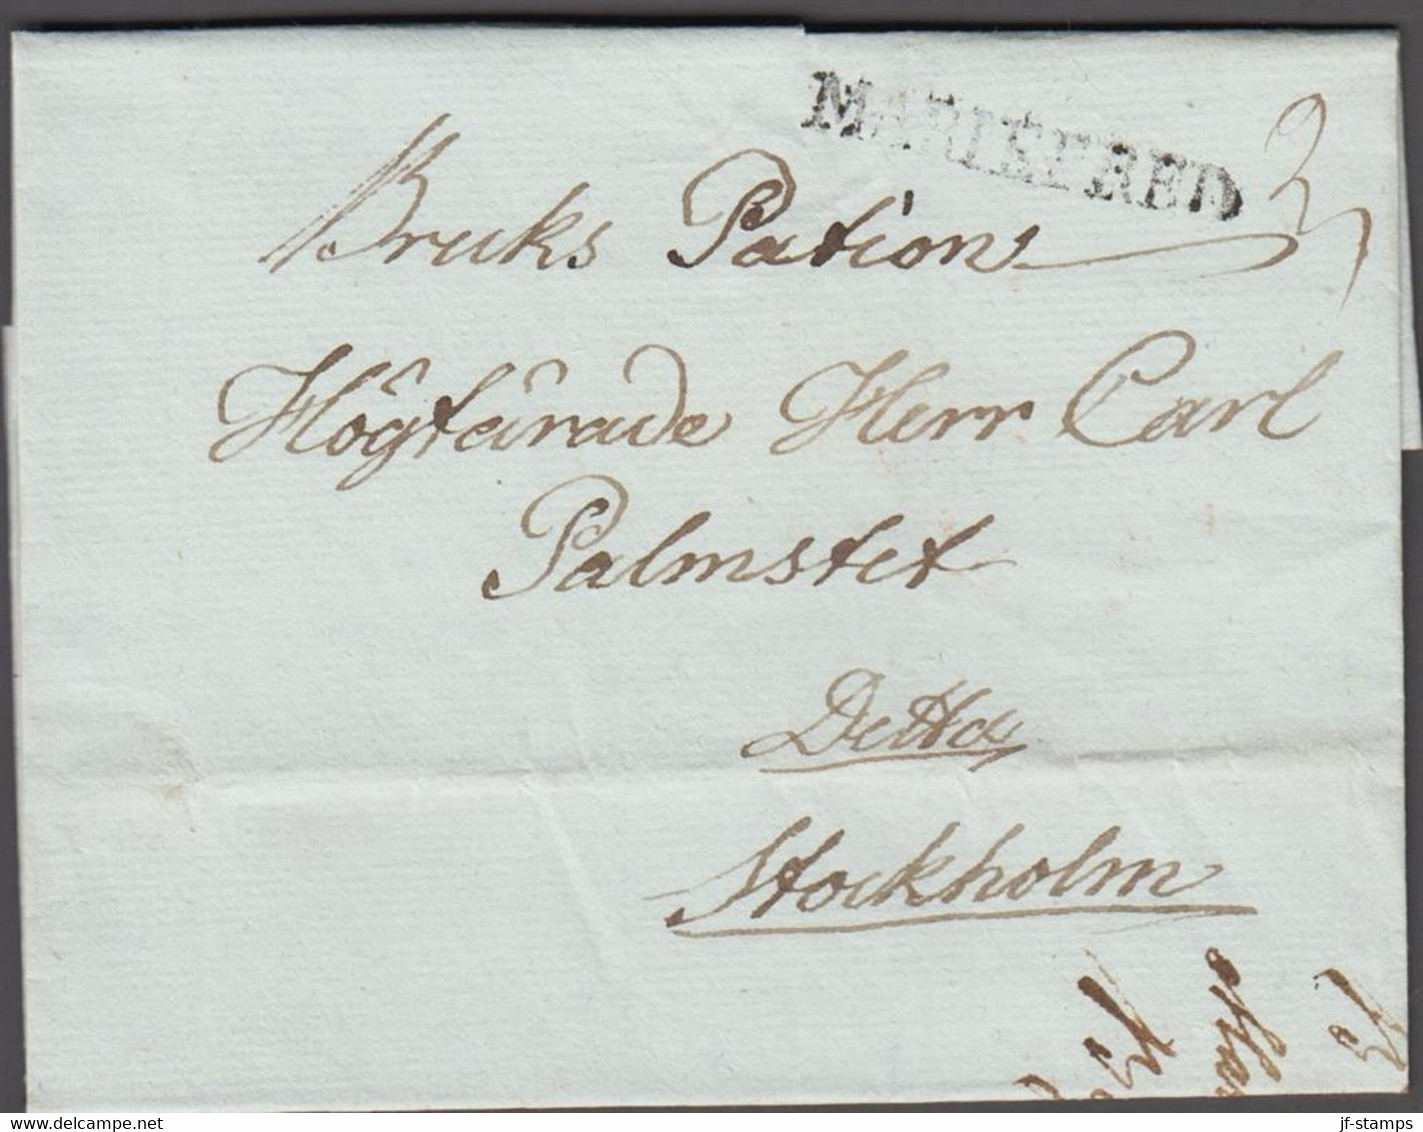 MARIEFRED
Bruks Pation
Högtärade Herr Carl
Palmstet
Detta
Stockholm
www.delcampe.net
jf-stamps